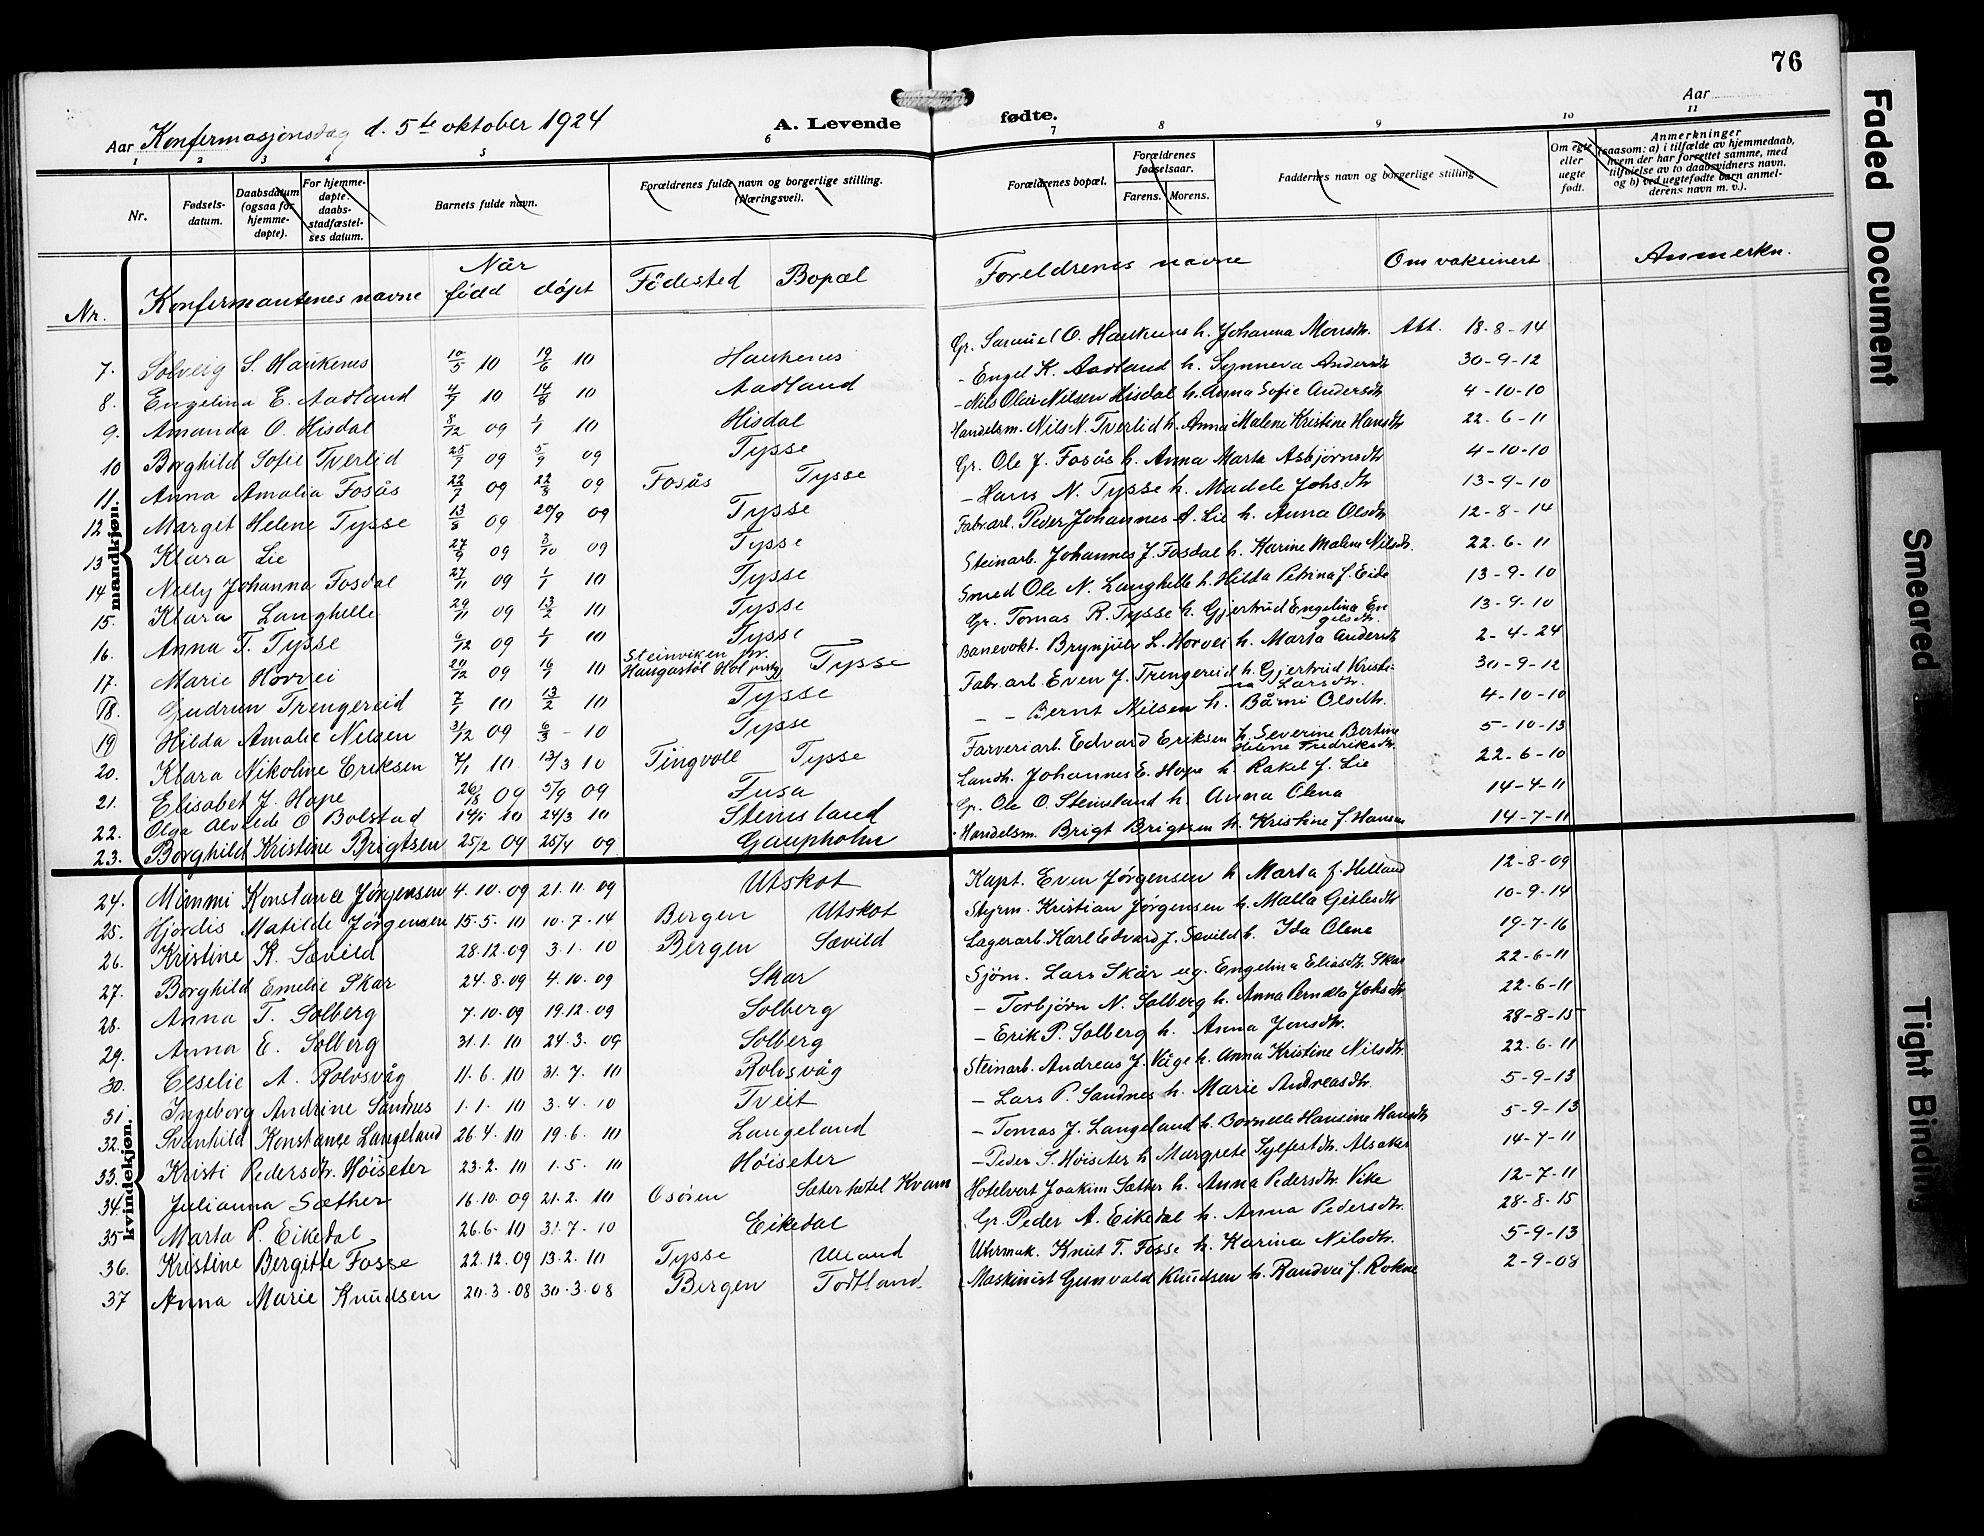 76
Aar Konfirmasjonsdag d. 5te oktober 1924
A. Levende fødte.
Aar
1 2 3 4 5 6 7 8 9 10 11
Nr.
Fødsels-datum.
Daabsdatum (ogsaa for hjemme-døpte).
For hjemme-døpte: daabs-stadfæstel-ses datum.
Barnets fulde navn.
Forældrenes fulde navn og borgerlige stilling. (Næringsvei).
Forældrenes bopæl.
Forældrenes fødselsaar.
Farens. Morens.
Faddernes navn og borgerlige stilling
Om egte eller uegte født.
Anmerkninger (saasom: a) i tilfælde av hjemmedaab, hvem der har forrettet samme, med tilføielse av to daabsvidners navn, og b) ved uegtefødte barn anmel-derens navn m. v.).
Nr. Konfirmantenes navne Når født døpt Födested Bopæl Foreldrenes navne Om vaksinert Anmerkn.
mandkjøn.
7. Solveig S. Haukenes 10/5 10 19/6 10 Haukenes Gr. Samuel O. Haukenes h. Johanna Monsdtr. Att. 18-8-14
8. Engelina E. Aadland 4/7 10 14/8 10 Aadland - Engel K. Aadland h. Synneva Andersdtr 30-9-12
9. Amanda O. Hisdal 8/12 09 1/1 10 Hisdal - Nils Olai Nilsen Hisdal h. Anna Sofie Andersdtr 4-10-10
10 Borghild Sofie Tverlid 25/7 09 5/9 09 Tysse Handelsm. Nils N. Tverlid h. Anna Malene Kristine Hansdtr 22-6-11
11. Anna Amalia Fosås 22/7 09 22/8 09 Fosås Tysse Gr. Ole J. Fosås h. Anna Marta Asbjørnsdtr 4-10-10
12 Marget Helene Tysse 13/8 09 20/9 09 Tysse - Hans N. Tysse h. Madele Johs.dtr 13-9-10
13 Klara Lie 27/9 09 3/10 09 Tysse Fabr.arb. Peder Johannes A. Lie h. Anna Olsdtr 12-8-14
14 Nelly Johanna Fosdal 27/11 09 1/1 10 Tysse Steinarb. Johannes J. Fosdal h. Karine Malene Nilsdtr. 22-6-11
15. Klara Langhelle 29/11 09 13/2 10 Tysse Smed Ole N. Langhelle h. Hilda Petrina f. Eide 13-9-10
16. Anna T. Tysse 6/12 09 1/1 10 Tysse Gr. Tomas R. Tysse h. Gjertrud Engelina Engelsdtr. 13-9-10
17. Marie Horvei 20/12 09 16/1 10 Steinviken pr. Haugastøl Hol prstgj. Tysse Banevokt. Brynjulv L. Horvei h. Marta Andersdtr 2-4-24
18. Gudrun Trengereid 7/1 10 13/2 10 Tysse Fabr.arb Even J. Trengereid h. Gjertrud Kristina Larsdtr. 30-9-12
19) Hilda Amalie Nilsen 31/12 09 6/3 - 10 Tysse - - Bernt Nilsen h. Bårni Olsdtr. 4-10-10
20. Klara Nikoline Eriksen 7/1 10 13/3 10 Tingvoll Tysse Farveriarb. Edvard Eriksen h. Severine Bertine Helene Fredriksdtr. 5-10-13
21. Elisabet J. Hope 26/8 09 5/9 09 Fusa Landh. Johannes E. Hope h. Rakel f. Lie 22-6-10
22. Olga Alvilde O Bolstad 14/1 10 24/3 10 Steinsland Gr. Ole O. Steinsland h. Anna Olena 14-4-11
23. Borghild Kristine Brigtsen 25/2 09 25/4 09 Gaupholm Handelsm. Brigt Brigtsen h. Kristine f. Hansen 14-7-11
kvindekjøn.
24. Mimmi Konstance Jørgensen 4.10.09 21.11.09 Utskot Kapt. Even Jørgensen h Marta f. Helland 12-8-09
25. Hjördis Matilde Jørgensen 15.5.10 10.7.14 Bergen Utskot Styrm. Kristian Jørgensen h. Malla Gitlesdtr 10-9-14
26. Kristine K. Sævild 28.12.09 3.1.10 Bergen Sævild Lagerarb. Karl Edvard J. Sævild h. Ida Olene 19-7-16
27. Borghild Emelie Skar 24.8.09 4.10.09 Skar Sjøm. Lars Skår ug. Engelina Eliasdtr. Skar 22-6-11
28. Anna T. Solberg 7.10.09 19.12.09 Solberg - Torbjörn N. Solberg h. Anna Pernella Johsdtr 22-6-11
29. Anna E. Solberg 31.1.10 24.3.09 Solberg - Erik P. Solberg h. Anna Jonsdtr. 28-8-15
30. Ceselie A. Rolvsvåg 11.6.10 31.7.10 Rolvsvåg Steinarb. Andreas J. Våge h. Anna Kristine Nilsdtr. 22-6-11
31. Ingeborg Andrine Sandnes 1.1.10 3.4.10 Tveit - Lars P. Sandnes h. Marie Andreasdtr. 5-9-13
32. Svanhild Konstanse Langeland 26.4.10 19.6.10 Langeland - Tomas J. Langeland h. Bornella Hansine Hansdtr 5-9-13
33. Kristi Pedersdtr. Höiseter 23.2.10 1.5.10 Höiseter - Peder S. Höiseter h Margrete Sylfestdtr. Alsaker 14-7-11
34. Julianna Sæther 16.10.09 21.2.10 Osören Sæter hotel Kvam Hotelvert Joakim Sætter h. Anna Pedersdtr. Vike 12-7-11
35 Marta P. Eikedal 26.6.10 31.7.10 Eikedal Gr. Peder A. Eikedal h. Anna Pedersdtr. 28-8-15
36. Kristine Bergitte Fosse 22.12.09 13.2.10 Tysse Uland Uhrmak. Knut T. Fosse h. Karina Nilsdtr. 5-9-13
37 Anna Marie Knudsen 20.3.08 30.3.08 Bergen Todtland Maskinist Gunvald Knudsen h. Randvei f. Rokne 2-9-08
Faded Document
Smeared
Tight Binding